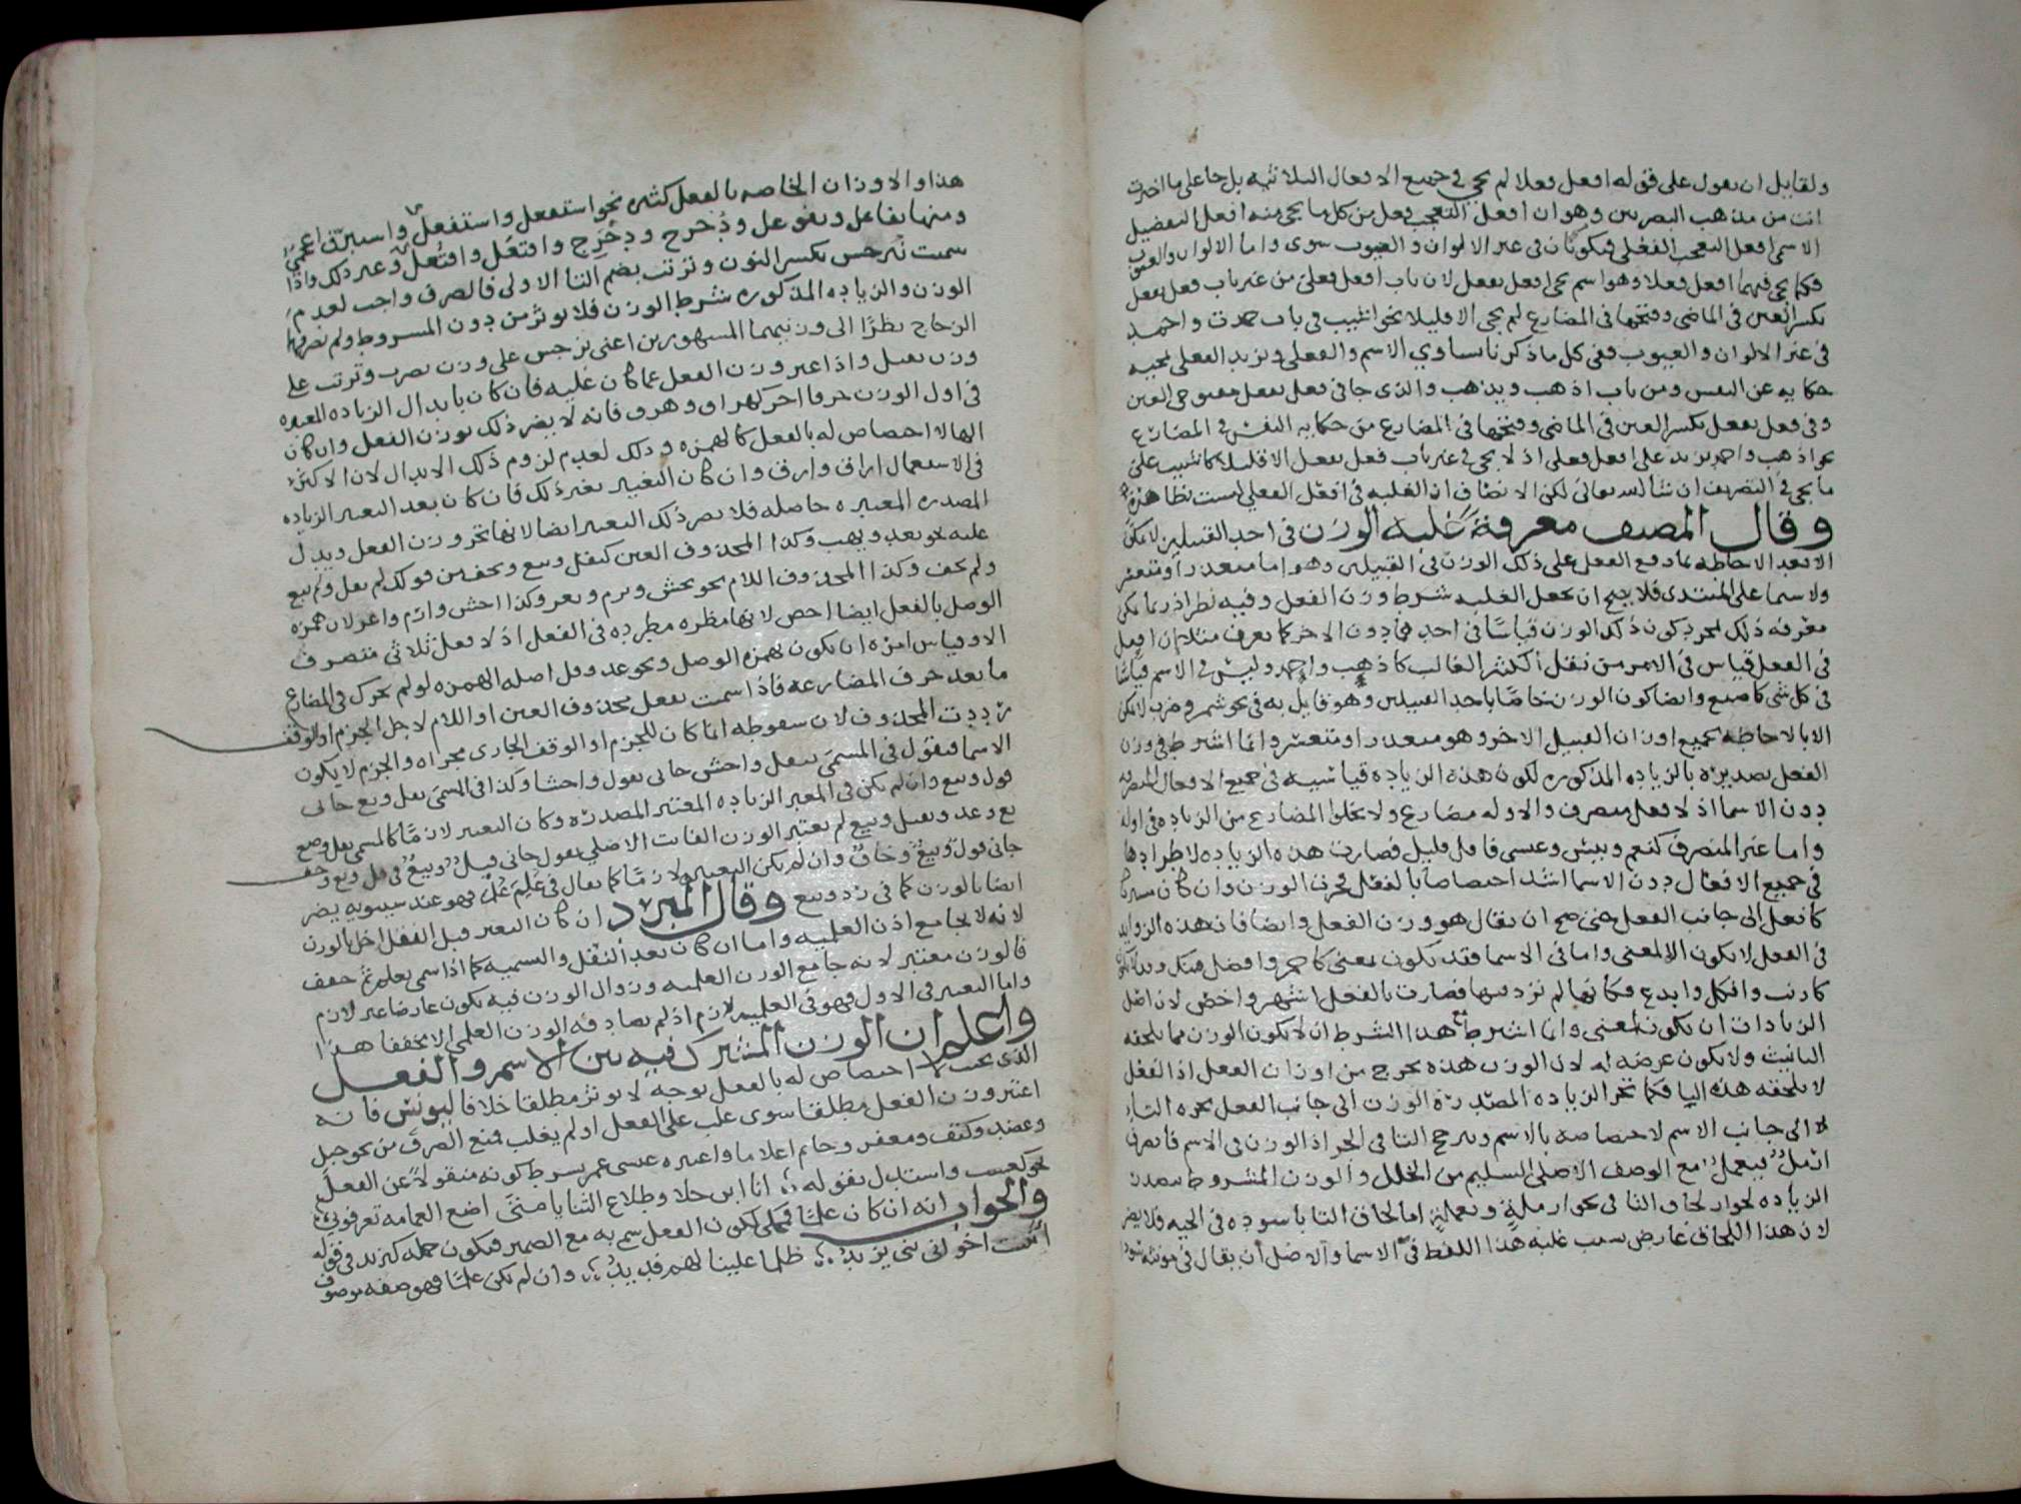 ولقايل ان يقول على قوله افعل فعلا لم يجي في جميع الافعال الثلاثيه بل جا على ما اخترت
انت من مذهب البصريين وهو ان افعل التعجب فعل من كل ما يجي منه افعل التفضيل
الاسمي افعل التعجب الفعلي فيكونان في غير الالوان والعيوب سوى واما الالوان والعيوب
فكما يجي فيهما افعل فعلا وهو اسم يجي افعل يفعل لان باب افعل فعلى من غير باب فعل يفعل
بكسر العين في الماضي وفتحها في المضارع لم يجي الا قليلا نحو اشيب في باب حمدت واحمد
في غير الالوان والعيوب وفي كل ما ذكرنا يساوي الاسم والفعل ويزيد الفعلى بمجيه
حكايه عن النفس ومن باب اذهب ويذهب والذى جا في فعل يفعل مفتوحي العين
وفي فعل يفعل بكسر العين في الماضي وفتحها في المضارع من حكايه النفس في المضارع
نحو اذهب واحمد يزيد على افعل فعلى اذ لا يجي في غير باب فعل يفعل الا قليلا كاشيب على
ما يجي في التصريف ان شا الله تعالى لكن الانصاف ان الغلبه في افعل الفعلي ليست بظاهرة
وقال المصنف معرفة غلبه الوزن في احد القبيلين لا يمكن
الا بعد الاحاطه بما وقع الفعل على ذلك الوزن في القبيلين وهو اما متعذر او متعسر
ولا سيما على المبتدى فلا يصح ان يجعل الغلبه شرط وزن الفعل وفيه نظر اذ ربما يمكن
معرفه ذلك لمجرد كون ذلك الوزن قياسا في احدهما دون الاخر كما يعرف مثلا ان افعل
في الفعل قياس في الامر من يفعل الكثير الغالب كاذهب واحمد وليس في الاسم قياسا
في كل شي كاصبع وايضا كون الوزن خاصا باحد القبيلين وهو قايل به في نحو شمر وضرب لا يمكن
الا بالاحاطه بجميع اوزان القبيل الاخر وهو متعذر او متعسر وانما اشترط في وزن
الفعل تصديره بالزياده المذكوره لكون هذه الزياده قياسيه في جميع الافعال المتصرفه
دون الاسما اذ لا فعل متصرف والا وله مضارع ولا يخلو المضارع من الزياده في اوله
واما غير المتصرف كنعم وبيس وعسى فاقل قليل فصارت هذه الزياده لاطرادها
في جميع الافعال دون الاسما اشد اختصاصا بالفعل فجرت الوزن وان كان مشتركا
كافعل الى جانب الفعل حتى صح ان يقال هو وزن الفعل وايضا فان هذه الزوايد
في الفعل لا يكون الا لمعنى واما في الاسما فقد يكون لمعنى كاحمر وافضل منك وقد لا يكون
كارنب وافكل وايدع فكانها لم تزد فيها فصارت بالفعل اشهر واخص لان اصل
الزيادات ان يكون لمعنى وانما اشترط هذا الشرط ان لا يكون الوزن مما يلحقه
التانيث ولا يكون عرضه له لان الوزن بهذه يخرج من اوزان الفعل اذ الفعل
لا يلحقه هذه التا فكما تجر الزياده المصدرة الوزن الى جانب الفعل يجره التا
الى جانب الاسم لاختصاصه بالاسم ويترجح التا في الجر اذ الوزن في الاسم فانصرف
ارمل ويعمل مع الوصف الاصلى السليم من الخلل والوزن المشروط بتصدر
الزياده لجواز لحاق التا في نحو ارملة ويعملة اما لحاق التا باسوده في الحيه فلا يضر
لان هذا اللحاق عارض بسبب غلبه هذا اللفظ في الاسما والاصل ان يقال في مونثه سودا
هذا والاوزان الخاصه بالفعل كثيره نحو استفعل واستفعل واستبرق اعجمي
ومنها تفاعل وتفوعل ودحرج ودحرج وافتعل وافتعل وغير ذلك واذا
سميت نرجس بكسر النون وترتب بضم التا الاولى فالصرف واجب لعدم
الوزن والزياده المذكوره شرط الوزن فلا يوثر من دون المشروط ولم يصرفهما
الزجاج نظرا الى وزنيهما المشهورين اعنى نرجس على وزن نضرب وترتب على
وزن تقتل واذا غير وزن الفعل عما كان عليه فان كان بابدال الزياده المعتبره
في اول الوزن حرفا اخر كهراق وهرق فانه لا يضر ذلك بوزن الفعل وان كان
الها لا اختصاص له بالفعل كالهمزه وذلك لعدم لزوم ذلك الابدال لان الاكثر
في الاستعمال اراق وارق وان كان التغيير بغير ذلك فان كان بعد التغيير الزياده
المصدره المعتبره حاصله فلا يضر ذلك التغيير ايضا لانها تجر وزن الفعل ويدل
عليه نحو يعد ويهب وكذا المحذوف العين كيقل ويبع ويخف من قولك لم يقل ولم يبع
ولم يخف وكذا المحذوف اللام نحو يخش ويرم ويغز وكذا اخش وارم واغز لان همزه
الوصل بالفعل ايضا اخص لانها مطرده في الفعل اذ لا فعل ثلاثي متصرف
الا وقياس امره ان يكون بهمزه الوصل ونحو عد وقل اصله الهمزه لو لم يحرك في المضارع
ما بعد حرف المضارعه فاذا سميت بفعل محذوف العين او اللام لاجل الجزم او الوقف
رددت المحذوف لان سقوطه انما كان للجزم او الوقف الجارى مجراه والجزم لا يكون
الاسما فتقول في المسمى بيقل واخش جانى يقول واخشا وكذا في المسمى بقل وبع جانى
قول وبيع وان لم يكن في المغير الزياده المعتبر المصدره وكان التغيير لازما كالمسمى بقل وبع
بع وعد وقيل وبيع لم يعتبر الوزن الفايت الاصلي يقول جانى قيل وبيع في قل وبع وخف
جانى قول وبيع وخاف وان لم يكن التغيير لازما كما يقال في علم علم فهو عند سيبويه يضر
ايضا بالوزن كما في رد وبيع وقال المبرد ان كان التغيير قبل النقل اخل بالوزن
لانه لا يجامع اذن العلميه واما ان كان بعد النقل والتسميه كما اذا سمى بعلم ثم خفف
فالوزن معتبر لانه جامع الوزن العلميه وزوال الوزن فيه يكون عارضا غير لازم
واما التغيير في الاول فهو في العلميه لازم اذ لم يصادفه الوزن العلمى الا مخففا هذا
واعلم ان الوزن المشترك فيه بين الاسم والفعل
الذى بحيث لا اختصاص له بالفعل بوجه لا يوثر مطلقا خلافا ليونس فانه
اعتبر وزن الفعل مطلقا سوى غلب على الفعل او لم يغلب فمنع الصرف من نحو جبل
وعضد وكتف ومعفر وخاتم اعلاما واعتبره عيسى بن عمر بشرط كونه منقولا عن الفعل
نحو كعسب واستدل بقوله انا ابن جلا وطلاع الثنايا متى اضع العمامه تعرفوني
والجواب انه ان كان علما فمحكى لكون الفعل سمى به مع الضمير فيكون جمله كيزيد في قوله
نبئت اخوالى بنى يزيد ظلما علينا لهم فديد وان لم يكن علما فهو صفه موصوف